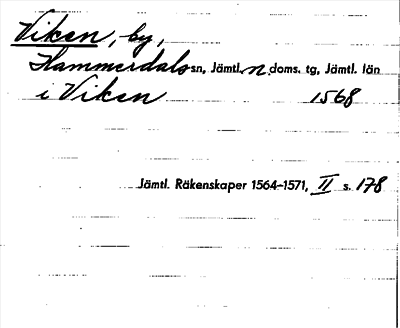 Viken, by,
Hammerdals sn, Jämtl. n. doms. tg, Jämtl. län
i Viken 1568
Jämtl. Räkenskaper 1564-1571, II s. 178